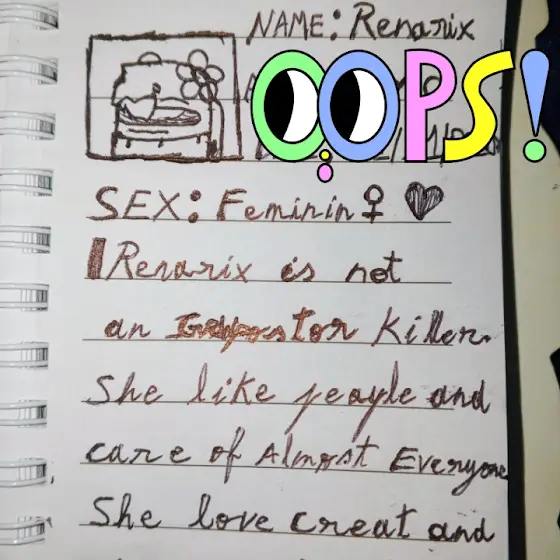 NAME: Renarix
OOPS!
SEX: Feminin ♀ ♥
Renarix is not
an tor Killer.
She like peayle and
care of Almost Everyone
She love creat and